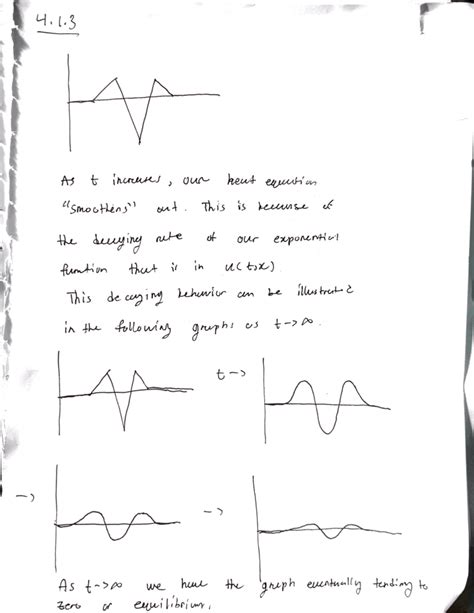 4.1.3
As t increases, our heat equation
"smoothens" out. This is because of
the decaying rate of our exponential
function that is in u(t,x)
This decaying behavior can be illustrated
in the following graphs as t->∞.
t->
->
->
As t->∞ we have the graph eventually tending to
zero or equilibrium.